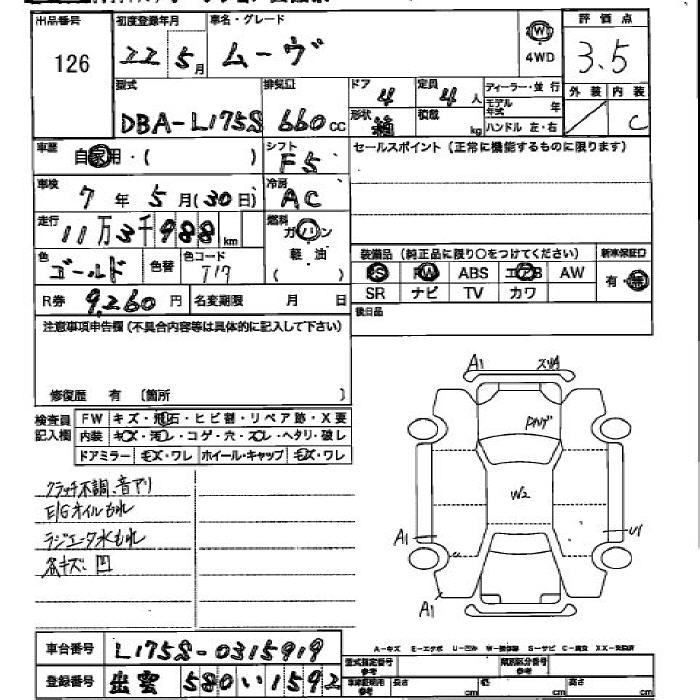 出品番号 初度登録年月 車名・グレード 評価点
126 22 5月 ムーヴ W 4WD 3.5
外装 内装
C
型式 排気量 ドア 定員 ディーラー・並行
DBA-L175S 660cc 4 4人 モデル年式 年
形状 箱 積載 kg ハンドル 左・右
車歴 自家用・( ) シフト F5 セールスポイント (正常に機能するものに限ります)
車検 7年5月(30日) 冷房 AC
走行 11万3千988km 燃料 ガソリン
軽油
( )
色 ゴールド 色替 色コード T17
装備品 (純正品に限り○をつけてください) 新車保証口
PS PW ABS エアB AW 有・無
SR ナビ TV カワ
R券 9,260円 名変期限 月 日 後日品
注意事項申告欄 (不具合内容等は具体的に記入して下さい)
修復歴 有 〔箇所 〕
検査員記入欄 FW キズ・飛石・ヒビ割・リペア跡・X要
内装 キズ・汚レ・コゲ・穴・スレ・ヘタリ・破レ
ドアミラー キズ・ワレ ホイール・キャップ キズ・ワレ
クラッチ不調、音アリ
E/Gオイルもれ
ラジエータ水もれ
各キズ、凹
A1
W2
A1 U1
A1
A-キズ E-エクボ U-凹み S-サビ
車台番号 L175S-0315919
登録番号 出雲 580 い 1592
型式指定番号 類別区分番号
cm 幅 cm 高さ cm